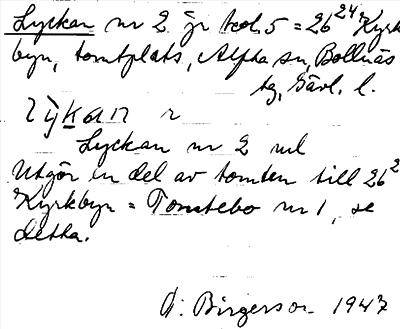 Lyckan nr 2 är tot. 5 = 26²⁴ Kyrk
byn, tomtplats, Alfta sn, Bollnäs
tg, Gävl. l.
lỳkan r
Lyckan nr 2 ml
Utgör en del av tomten till 26²
Kyrkbyn = Tomtebo nr 1, se
detta.
D: Birgerson 1947